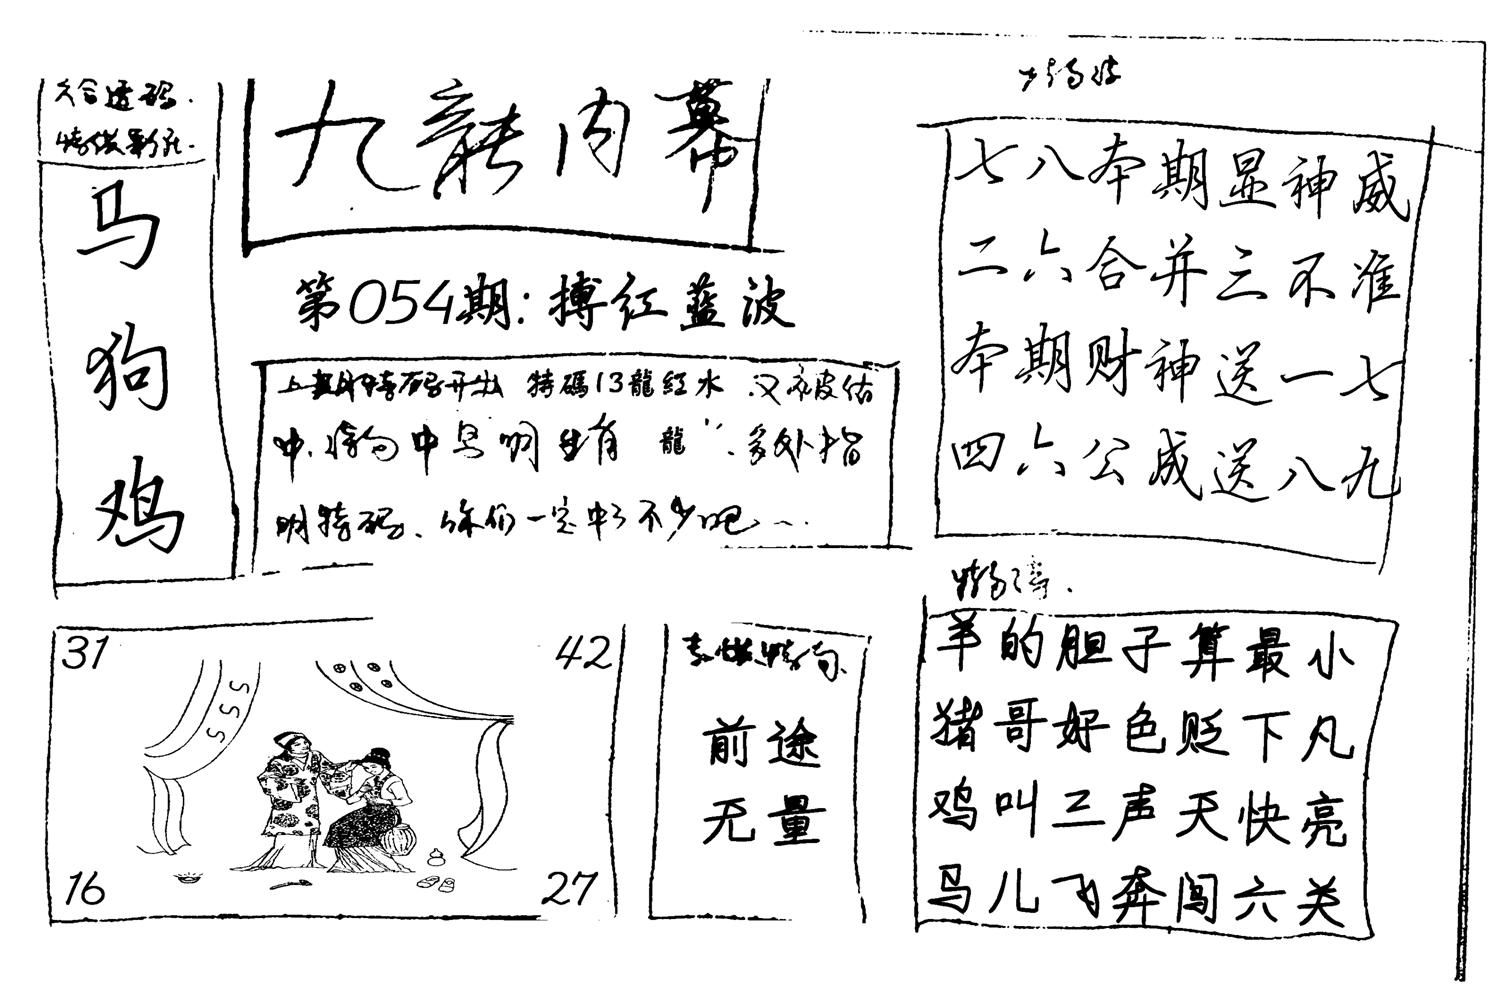 六合透码.
马
狗
鸡
九龍内幕
第054期:搏红蓝波
上期特码开出 特碼13龍红水
中 特 中 明 生肖 龍 多处指
明特码、你们一定中了不少吧
七八本期显神威
二六合并三不准
本期财神送一七
四六公成送八九
31
42
16
27
前途
无量
羊的胆子算最小
猪哥好色贬下凡
鸡叫三声天快亮
马儿飞奔闯六关